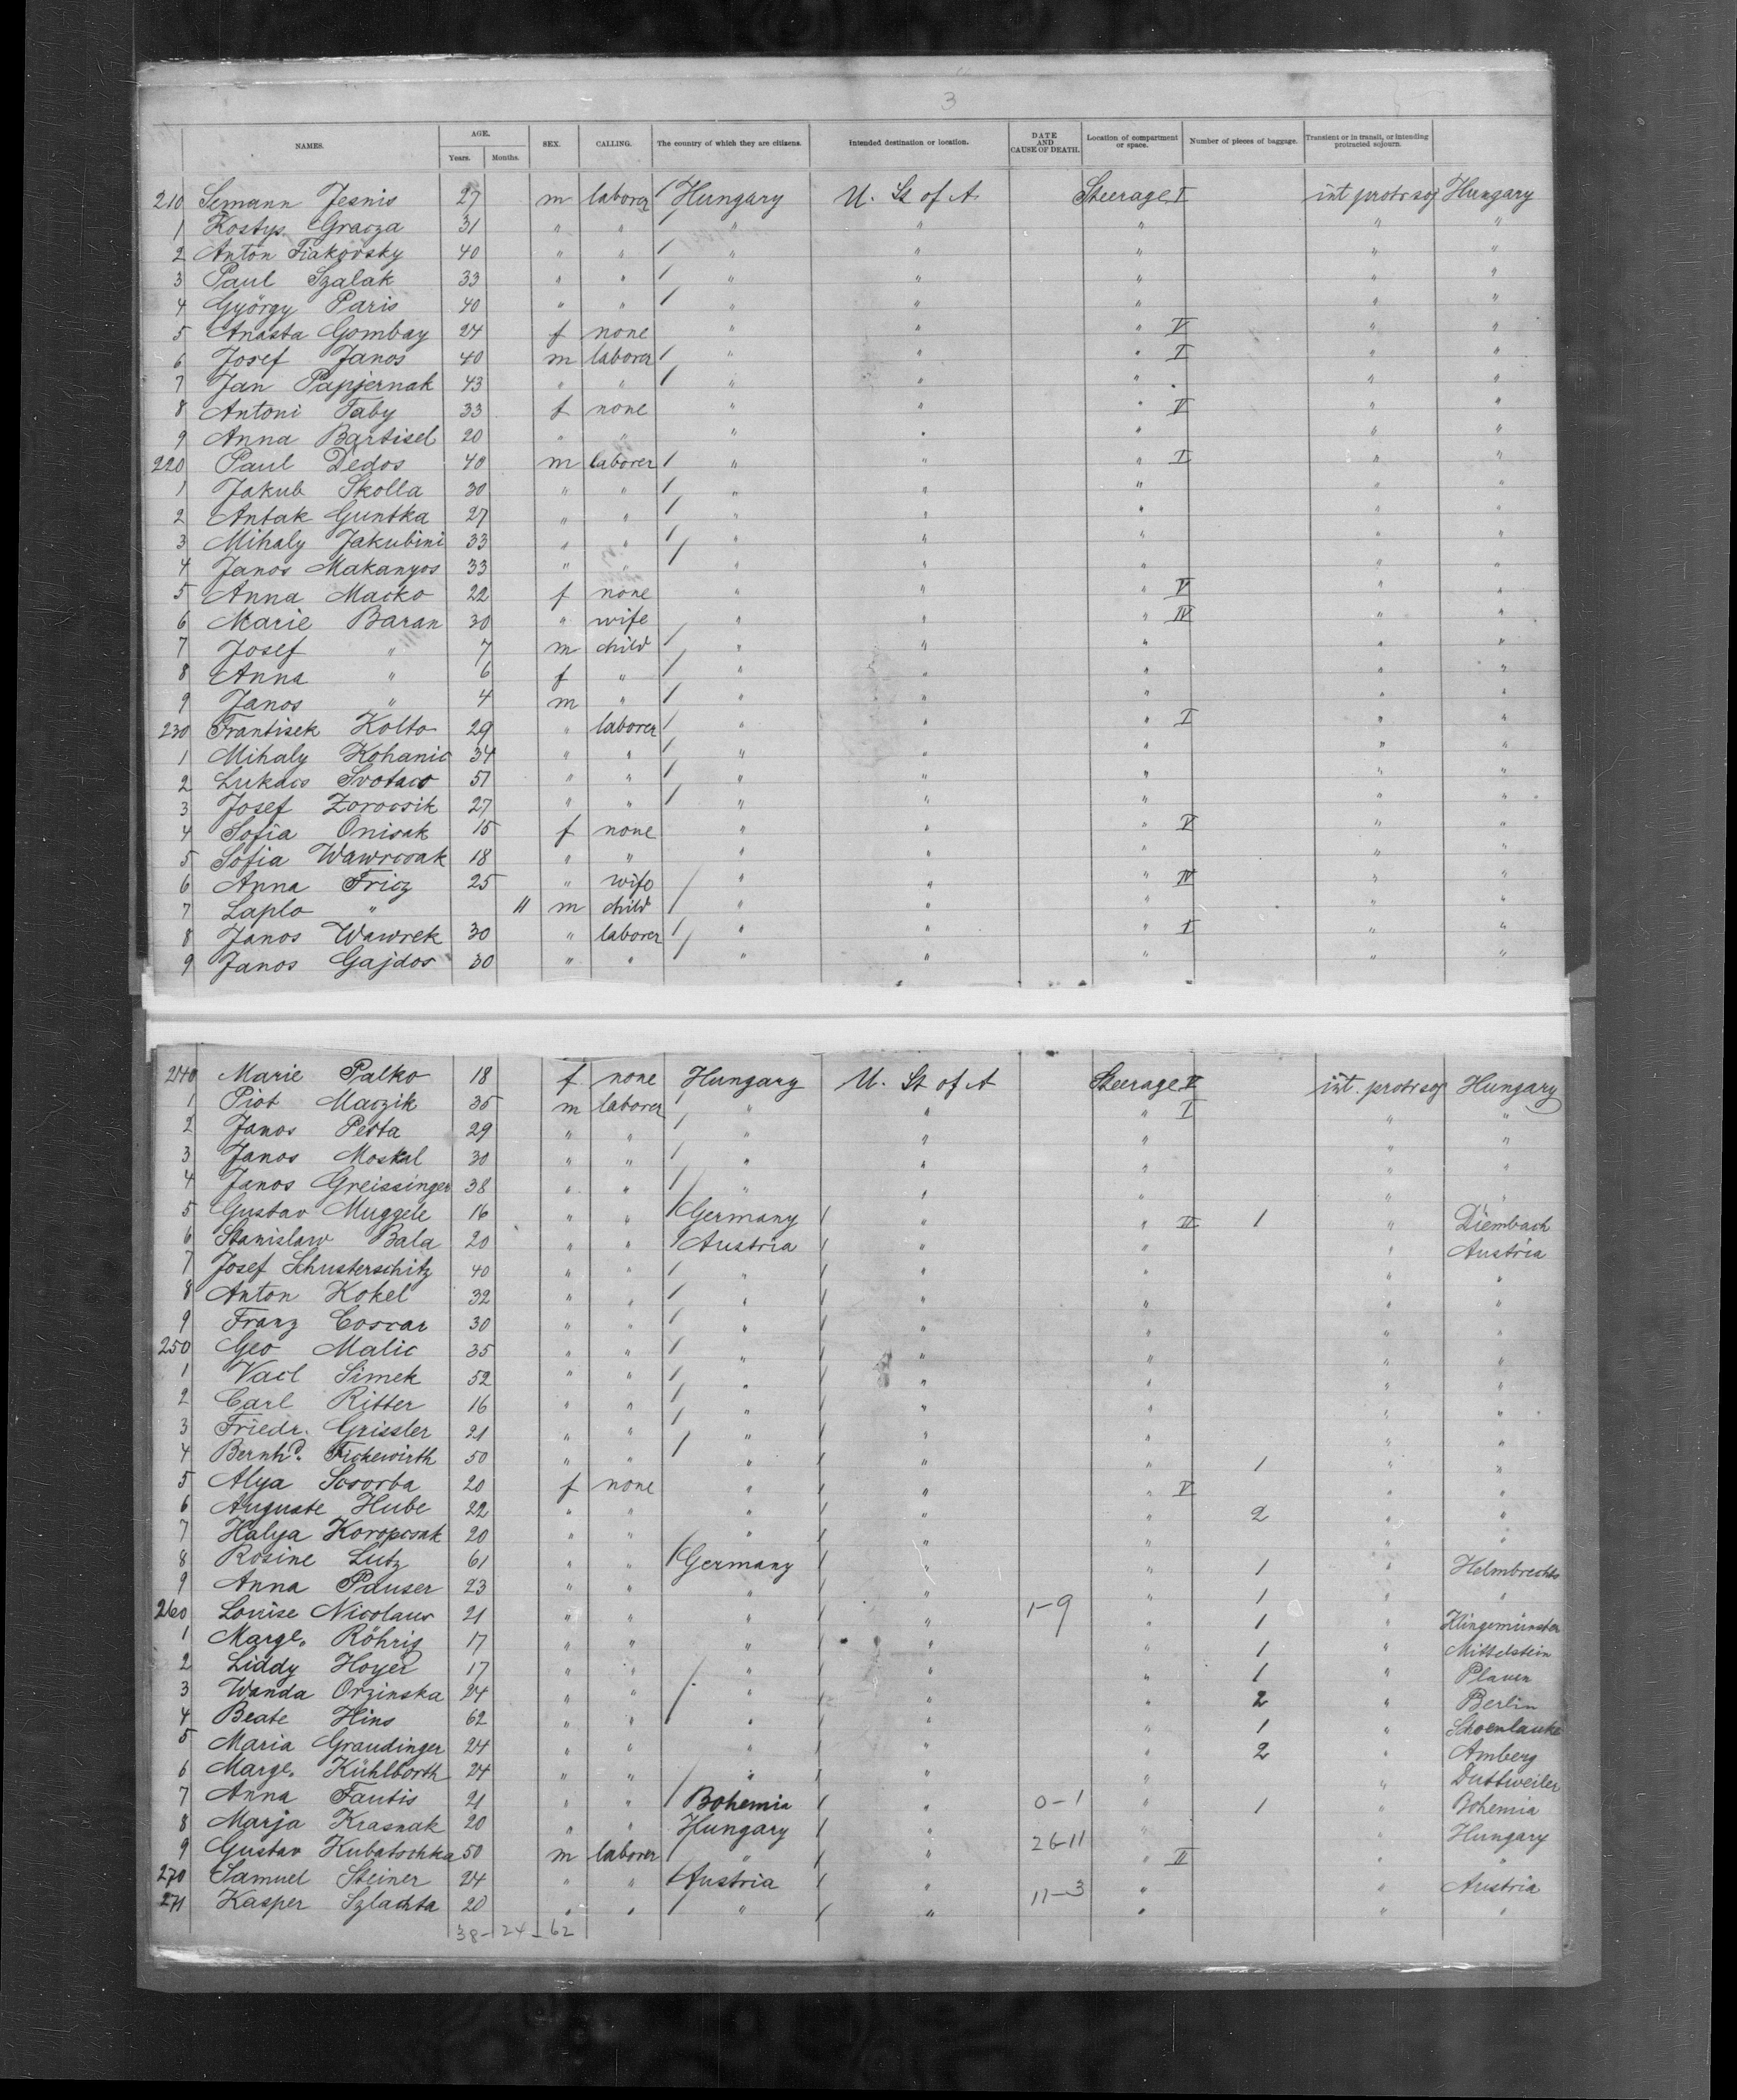 3
NAMES. AGE. Years. Months. SEX. CALLING. The country of which they are citizens. Intended destination or location. DATE AND CAUSE OF DEATH. Location of compartment or space. Number of pieces of baggage. Transient or in transit, or intending protracted sojourn.
210 Semann Jesnis 27 m laborer / Hungary U. St of A Steerage I int protr soj Hungary
1 Kostys Gracza 31 " " / " " " " "
2 Anton Fiakovsky 40 " " / " " " " "
3 Paul Szalak 33 " " / " " " " "
4 György Paris 40 " " / " " " " "
5 Anasta Gombay 24 f none " " " V " "
6 Josef Janos 40 m laborer / " " " I " "
7 Jan Papjernak 43 " " / " " " " "
8 Antoni Faby 33 f none " " " V " "
9 Anna Bartisel 20 " " " " " " "
220 Paul Dedos 40 m laborer / " " " I " "
1 Jakub Skolla 30 " " / " " " " "
2 Antak Guntka 27 " " / " " " " "
3 Mihaly Jakubini 33 " " / " " " " "
4 Janos Makanyos 33 " " / " " " " "
5 Anna Macko 22 f none " " " V " "
6 Marie Baran 30 " wife " " " IV " "
7 Josef " 7 m child / " " " " "
8 Anna " 6 f " / " " " " "
9 Janos " 4 m " / " " " " "
230 Frantisek Kolto 29 " laborer / " " " I " "
1 Mihaly Kohanic 34 " " / " " " " "
2 Lukacs Svotaco 51 " " / " " " " "
3 Josef Zorocsik 27 " " / " " " " "
4 Sofia Onisak 15 f none " " " V " "
5 Sofia Wawrcoak 18 " " " " " " "
6 Anna Fricz 25 " wife / " " " IV " "
7 Laplo " 11 m child / " " " " "
8 Janos Wawrek 30 " laborer / " " " I " "
9 Janos Gajdos 30 " " / " " " " "
240 Marie Palko 18 f none Hungary U. St of A Steerage V int. protr soj Hungary
1 Piot Maczik 35 m laborer / " " " I " "
2 Janos Pesta 29 " " / " " " " "
3 Janos Moskal 30 " " / " " " " "
4 Janos Greissinger 38 " " / " " " " "
5 Gustav Muggele 16 " " / Germany / " " II 1 " Diembach
6 Stanislaw Bala 20 " " / Austria / " " " Austria
7 Josef Schusterschitz 40 " " / " / " " " "
8 Anton Kokel 32 " " / " / " " " "
9 Franz Coscar 30 " " / " / " " " "
250 Geo Malic 35 " " / " / " " " "
1 Vacl Simek 52 " " / " / " " " "
2 Carl Ritter 16 " " / " / " " " "
3 Friedr. Grissler 21 " " / " / " " " "
4 Bernhd. Fickewirth 50 " " / " / " " 1 " "
5 Alya Socorba 20 f none " / " " V " "
6 Auguste Hube 22 " " " / " " 2 " "
7 Halya Koropcoak 20 " " " / " " " "
8 Rosine Lutz 61 " " / Germany / " " 1 " Helmbrechts
9 Anna Pauser 23 " " " / " " 1 " "
260 Louise Nicolaus 21 " " " / " 1-9 " 1 " Klingemünster
1 Margt. Röhrig 17 " " " / " " 1 " Mittelstein
2 Liddy Hoyer 17 " " / " / " " 1 " Plauen
3 Wanda Orzinska 24 " " / " / " " 2 " Berlin
4 Beate Hins 62 " " / " / " " 1 " Schoenlanke
5 Maria Graudinger 24 " " " / " " 2 " Amberg
6 Margt. Kühlborth 24 " " / " / " " " Duttweiler
7 Anna Fautis 21 " " / Bohemia / " 0-1 " 1 " Bohemia
8 Marja Krasnak 20 " " Hungary / " 26-11 " " Hungary
9 Gustav Kubatochka 50 m laborer / " / " " II " "
270 Samuel Steiner 24 " " / Austria / " 11-3 " " Austria
271 Kasper Szlachta 20 " " / " / " " " "
38-24-62